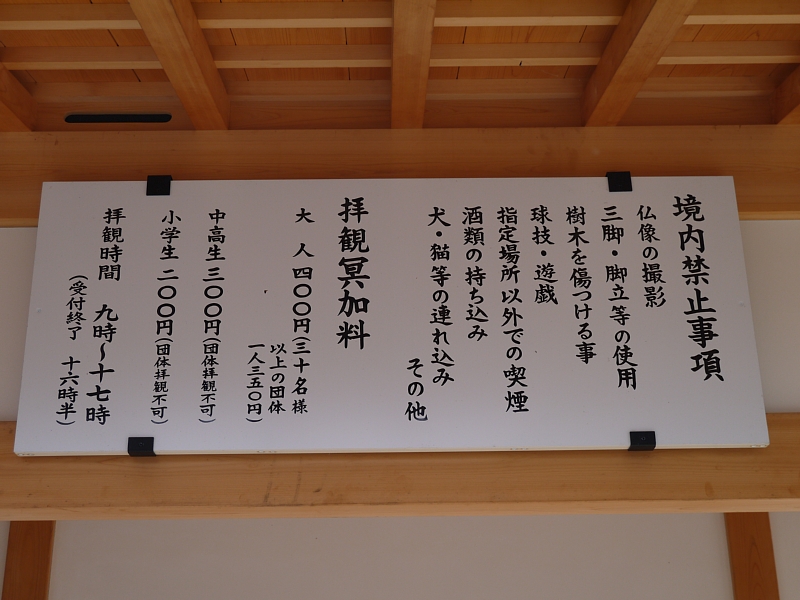 境内禁止事項
仏像の撮影
三脚・脚立等の使用
樹木を傷つける事
球技・遊戯
指定場所以外での喫煙
酒類の持ち込み
犬・猫等の連れ込み
その他
拝観冥加料
大人 四〇〇円(三十名様
以上の団体
一人三五〇円)
中高生 三〇〇円(団体拝観不可)
小学生 二〇〇円(団体拝観不可)
拝観時間 九時~十七時
(受付終了 十六時半)